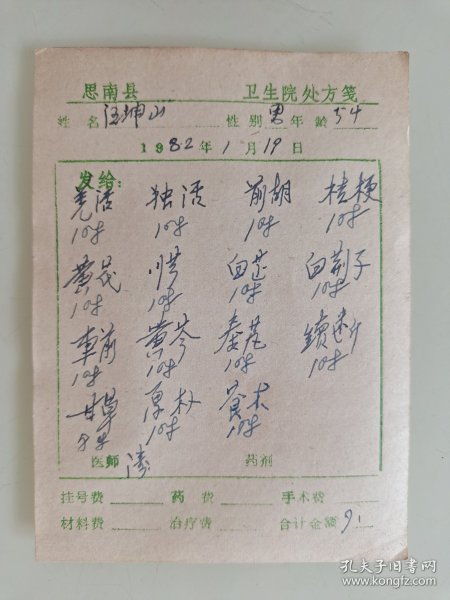 思南县 卫生院处方笺
姓名 汪坤山 性别 男 年龄 54
1982年1月19日
发给：
羌活 独活 前胡 桔梗
10g 10g 10g 10g
黄芪 川芎 白芷 白荆子
10g 10g 10g 10g
车前 黄芩 秦艽 续断
10g 10g 10g 10g
甘草 厚朴 苍术
8g 10g 10g
医师 药剂
挂号费 药费 手术费
材料费 治疗费 合计金额 9.1
孔夫子旧书网
www.kongfz.com